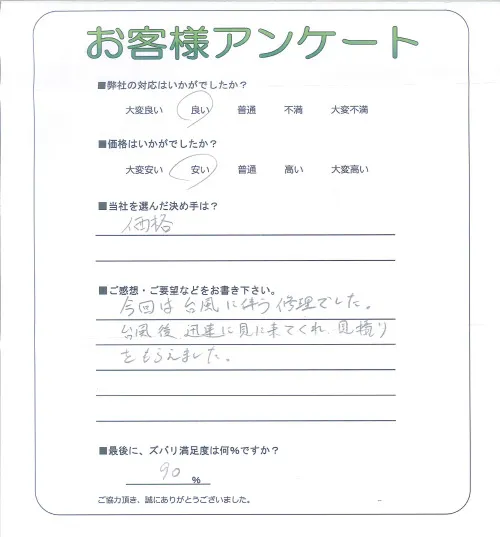 お客様アンケート
■弊社の対応はいかがでしたか？
大変良い 良い 普通 不満 大変不満
■価格はいかがでしたか？
大変安い 安い 普通 高い 大変高い
■当社を選んだ決め手は？
価格
■ご感想・ご要望などをお書き下さい。
今回は台風に伴う修理でした。
台風後迅速に見に来てくれ、見積り
をもらえました。
■最後に、ズバリ満足度は何％ですか？
90 %
ご協力頂き、誠にありがとうございました。